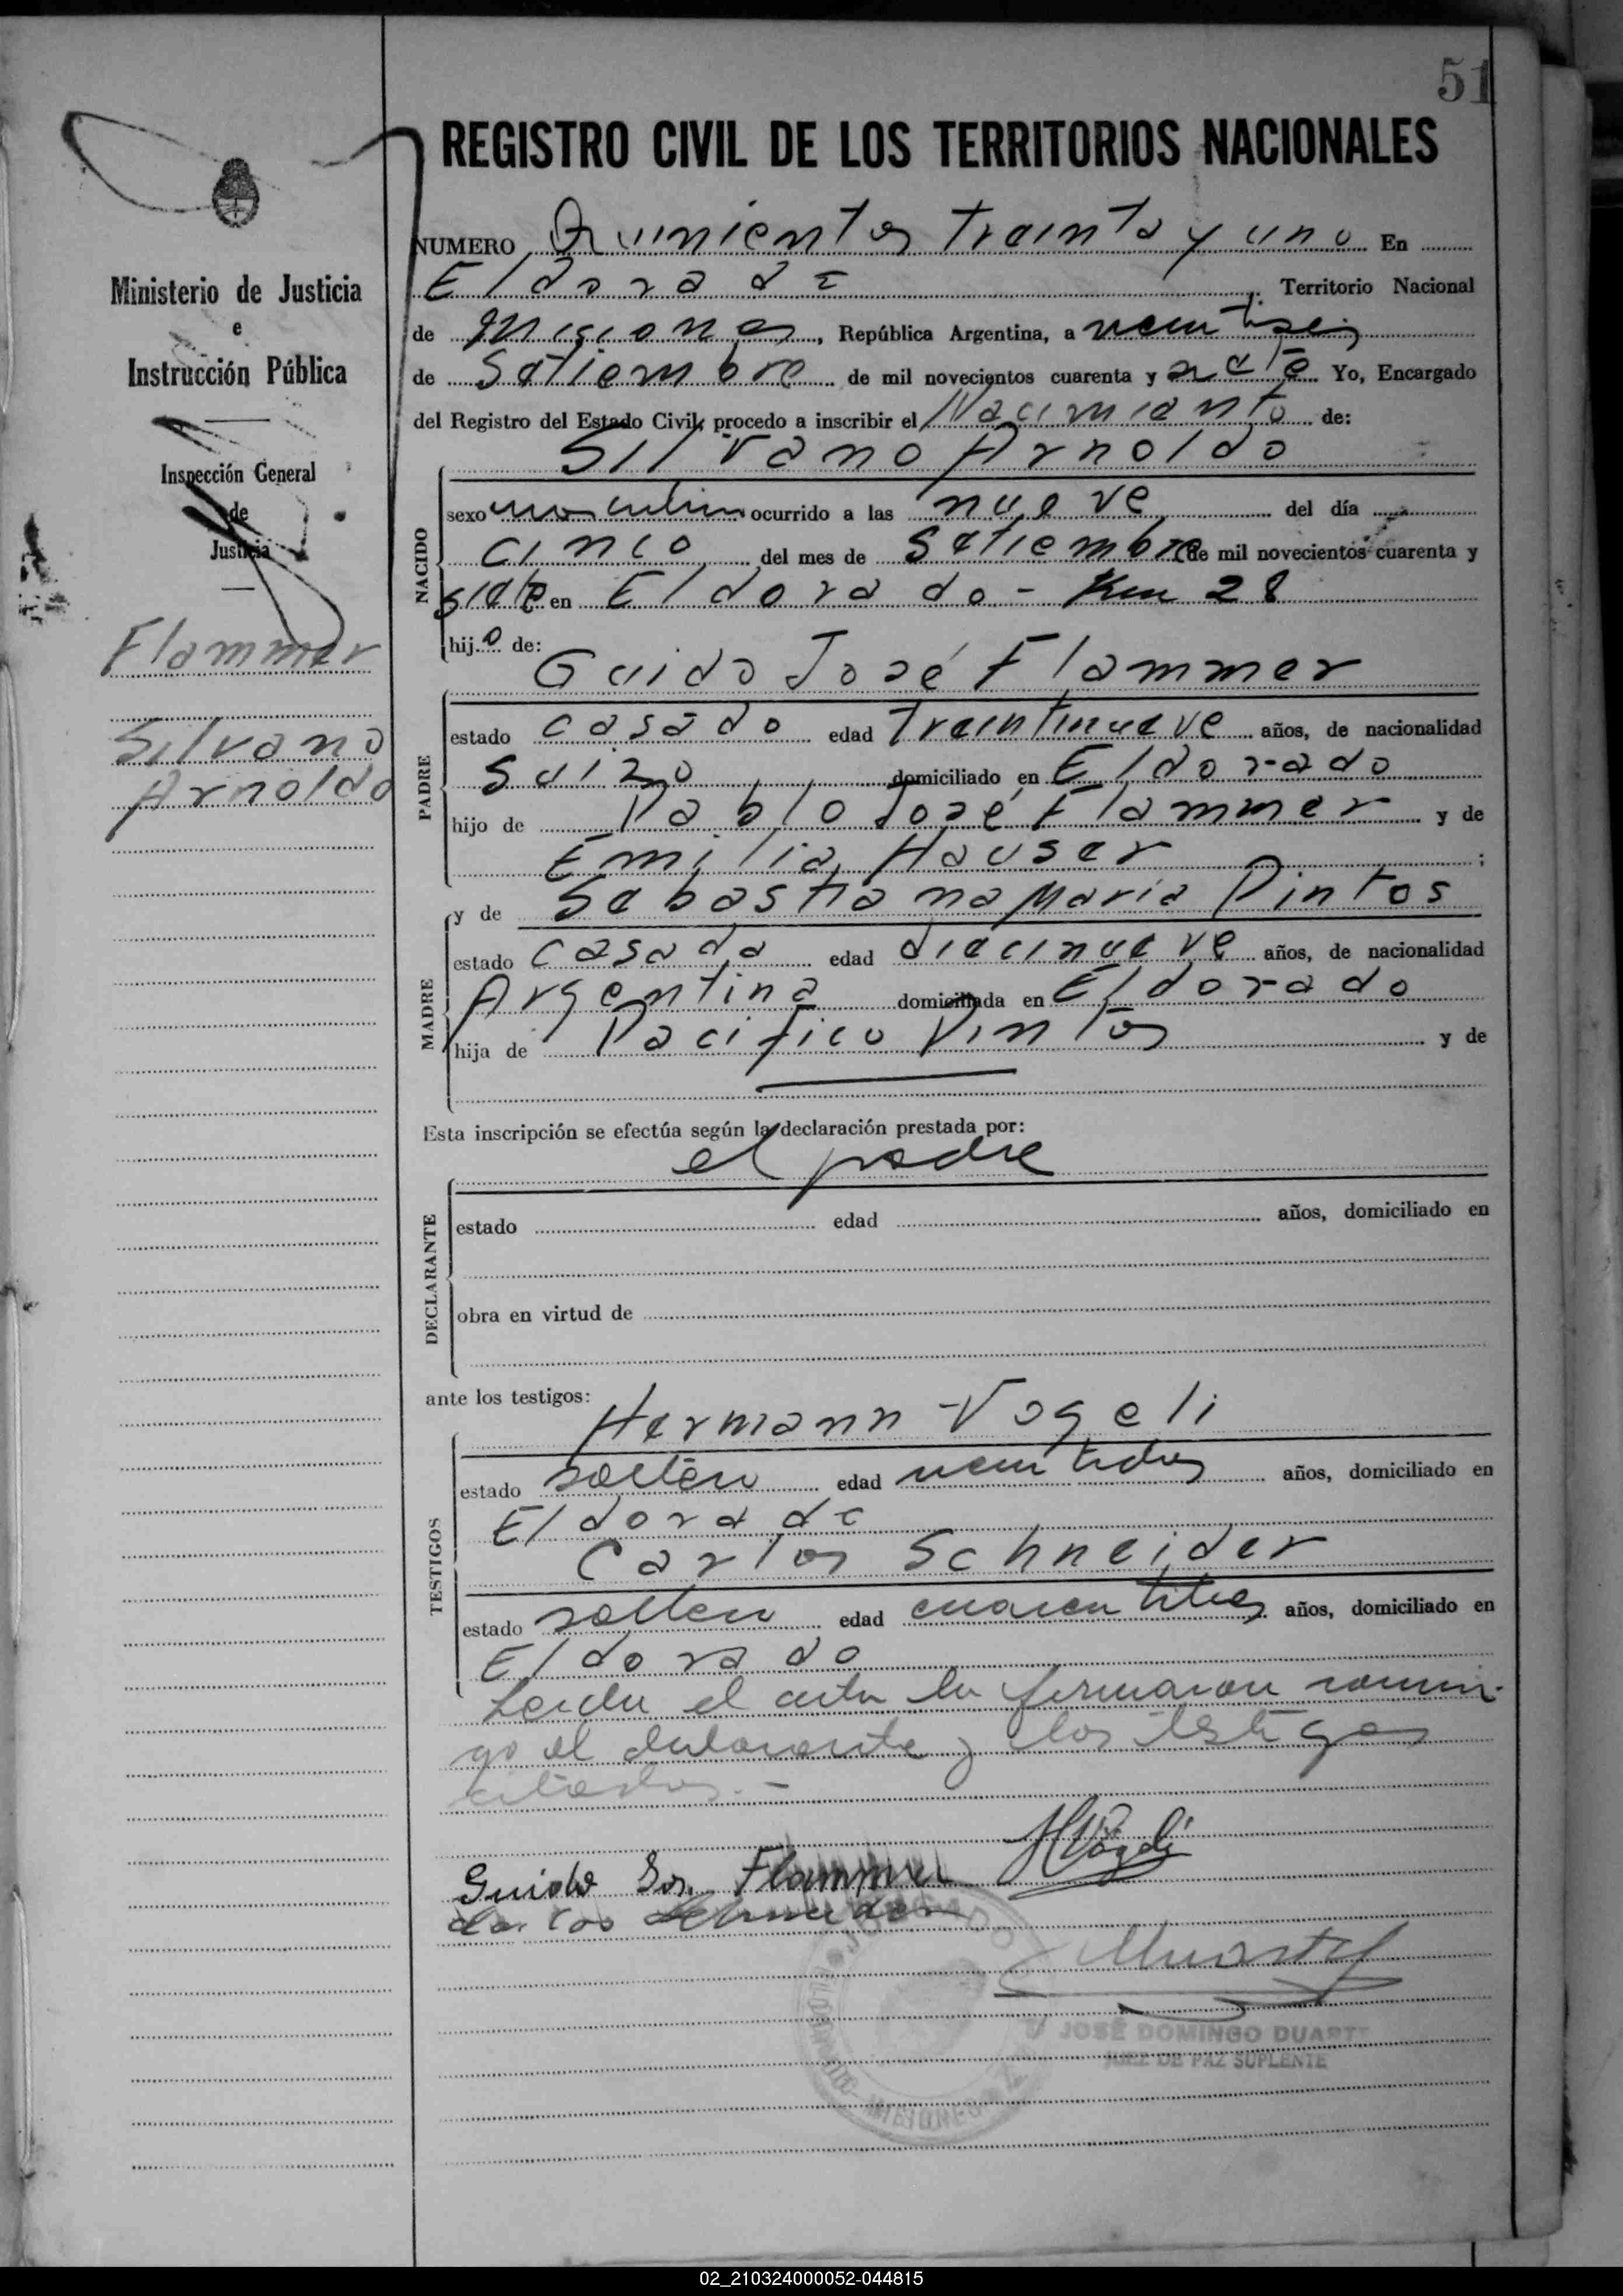 51
REGISTRO CIVIL DE LOS TERRITORIOS NACIONALES
NUMERO Quinientos treinta y uno En
Eldorado Territorio Nacional
de Misiones, República Argentina, a veintiseis
de Setiembre de mil novecientos cuarenta y siete Yo, Encargado
del Registro del Estado Civil, procedo a inscribir el Nacimiento de:
Silvano Arnoldo
NACIDO
sexo masculino ocurrido a las nueve del día
cinco del mes de Setiembre de mil novecientos cuarenta y
siete en Eldorado - Km 28
hijo de:
Guido José Flammer
PADRE
estado casado edad treintinueve años, de nacionalidad
Suizo domiciliado en Eldorado
hijo de Pablo José Flammer y de
Emilia Hauser ;
y de Sebastiana Maria Pintos
MADRE
estado casada edad diecinueve años, de nacionalidad
Argentina domiciliada en Eldorado
hija de Pacifico Pintos y de
Esta inscripción se efectúa según la declaración prestada por:
el padre
DECLARANTE
estado edad años, domiciliado en
obra en virtud de
ante los testigos:
Hermann Vogeli
TESTIGOS
estado soltero edad veintidos años, domiciliado en
Eldorado
Carlos Schneider
estado soltero edad cuarentitres años, domiciliado en
Eldorado
Leida el acta la firmaron conmi-
go el declarante y los testigos
citados.-
Guido Jos. Flammer HVögeli
Carlos Schneider
JOSÉ DOMINGO DUARTE
JUEZ DE PAZ SUPLENTE
MISIONES
Ministerio de Justicia
e
Instrucción Pública
Inspección General
de
Justicia
Flammer
Silvano
Arnoldo
02_210324000052-044815